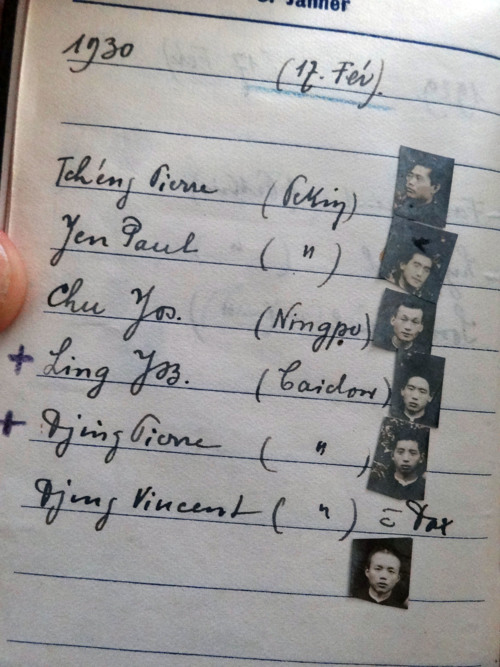 Janner
1930 (17. Fév).
Tchéng Pierre (Pékin)
Yen Paul ( " )
Chu Jos. (Ningpo)
+ Ling Jos. (
+ Djing Pierre ( " )
Djing Vincent ( " ) = Dax